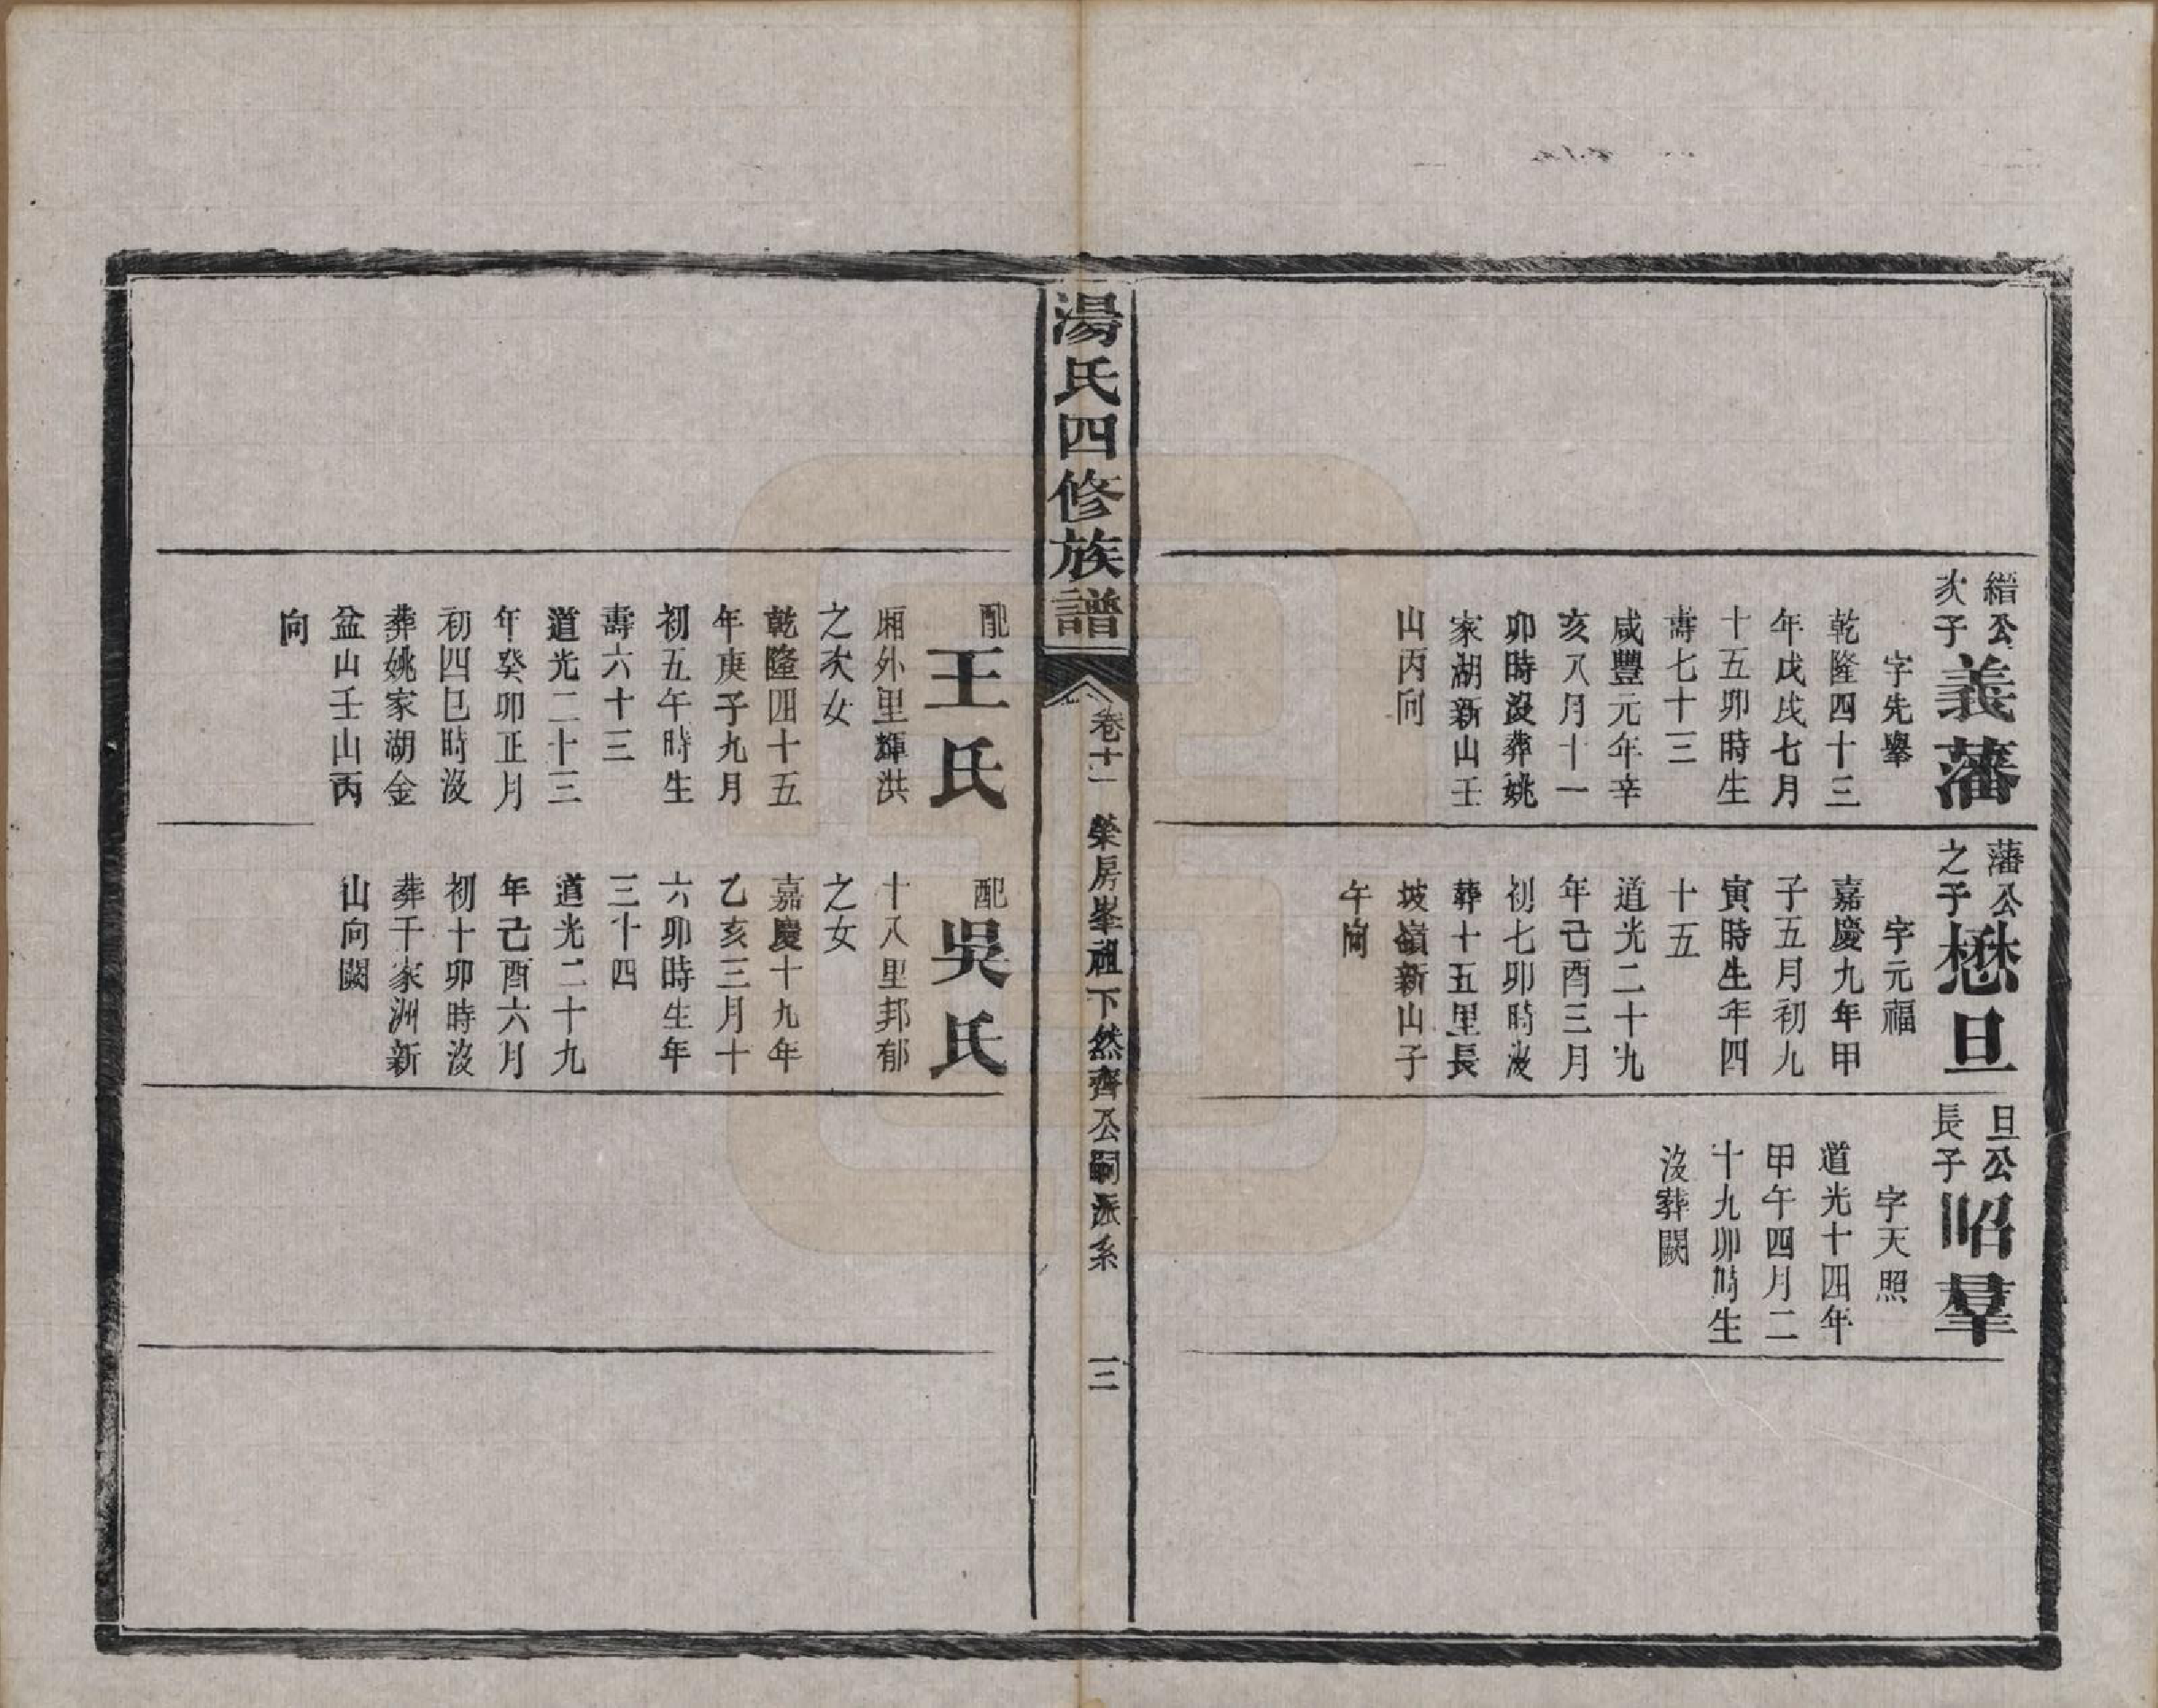 縉公
次子
義藩
字先舉
乾隆四十三
年戊戌七月
十五卯時生
壽七十三
咸豐元年辛
亥八月十一
卯時沒葬姚
家湖新山壬
山丙向
藩公
之子
懋旦
字元福
嘉慶九年甲
子五月初九
寅時生年四
十五
道光二十九
年己酉三月
初七卯時沒
葬十五里長
坡嶺新山子
午向
旦公
長子
昭羣
字天照
道光十四年
甲午四月二
十九卯時生
沒葬闕
湯氏四修族譜
卷十一
榮房峯祖下然齊公嗣派系
三
配
王氏
廂外里輝洪
之次女
乾隆四十五
年庚子九月
初五午時生
壽六十三
道光二十三
年癸卯正月
初四巳時沒
葬姚家湖金
盆山壬山丙
向
配
吳氏
十八里邦郁
之女
嘉慶十九年
乙亥三月十
六卯時生年
三十四
道光二十九
年己酉六月
初十卯時沒
葬干家洲新
山向闕